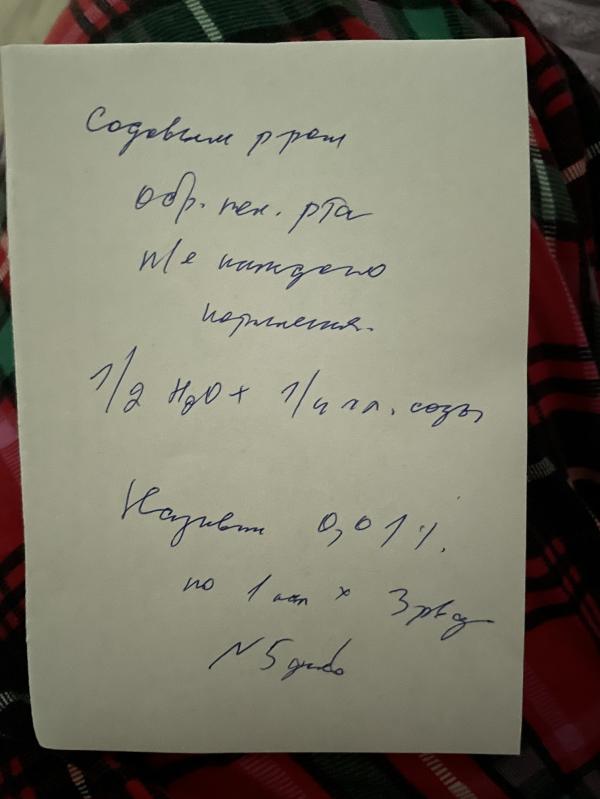 Содовым р-ром
обр. пол. рта
п/е каждого
кормления.
1/2 H2O + 1/4 чл. соды
Називин 0,01%
по 1 кап x 3 р в д
N 5 дней